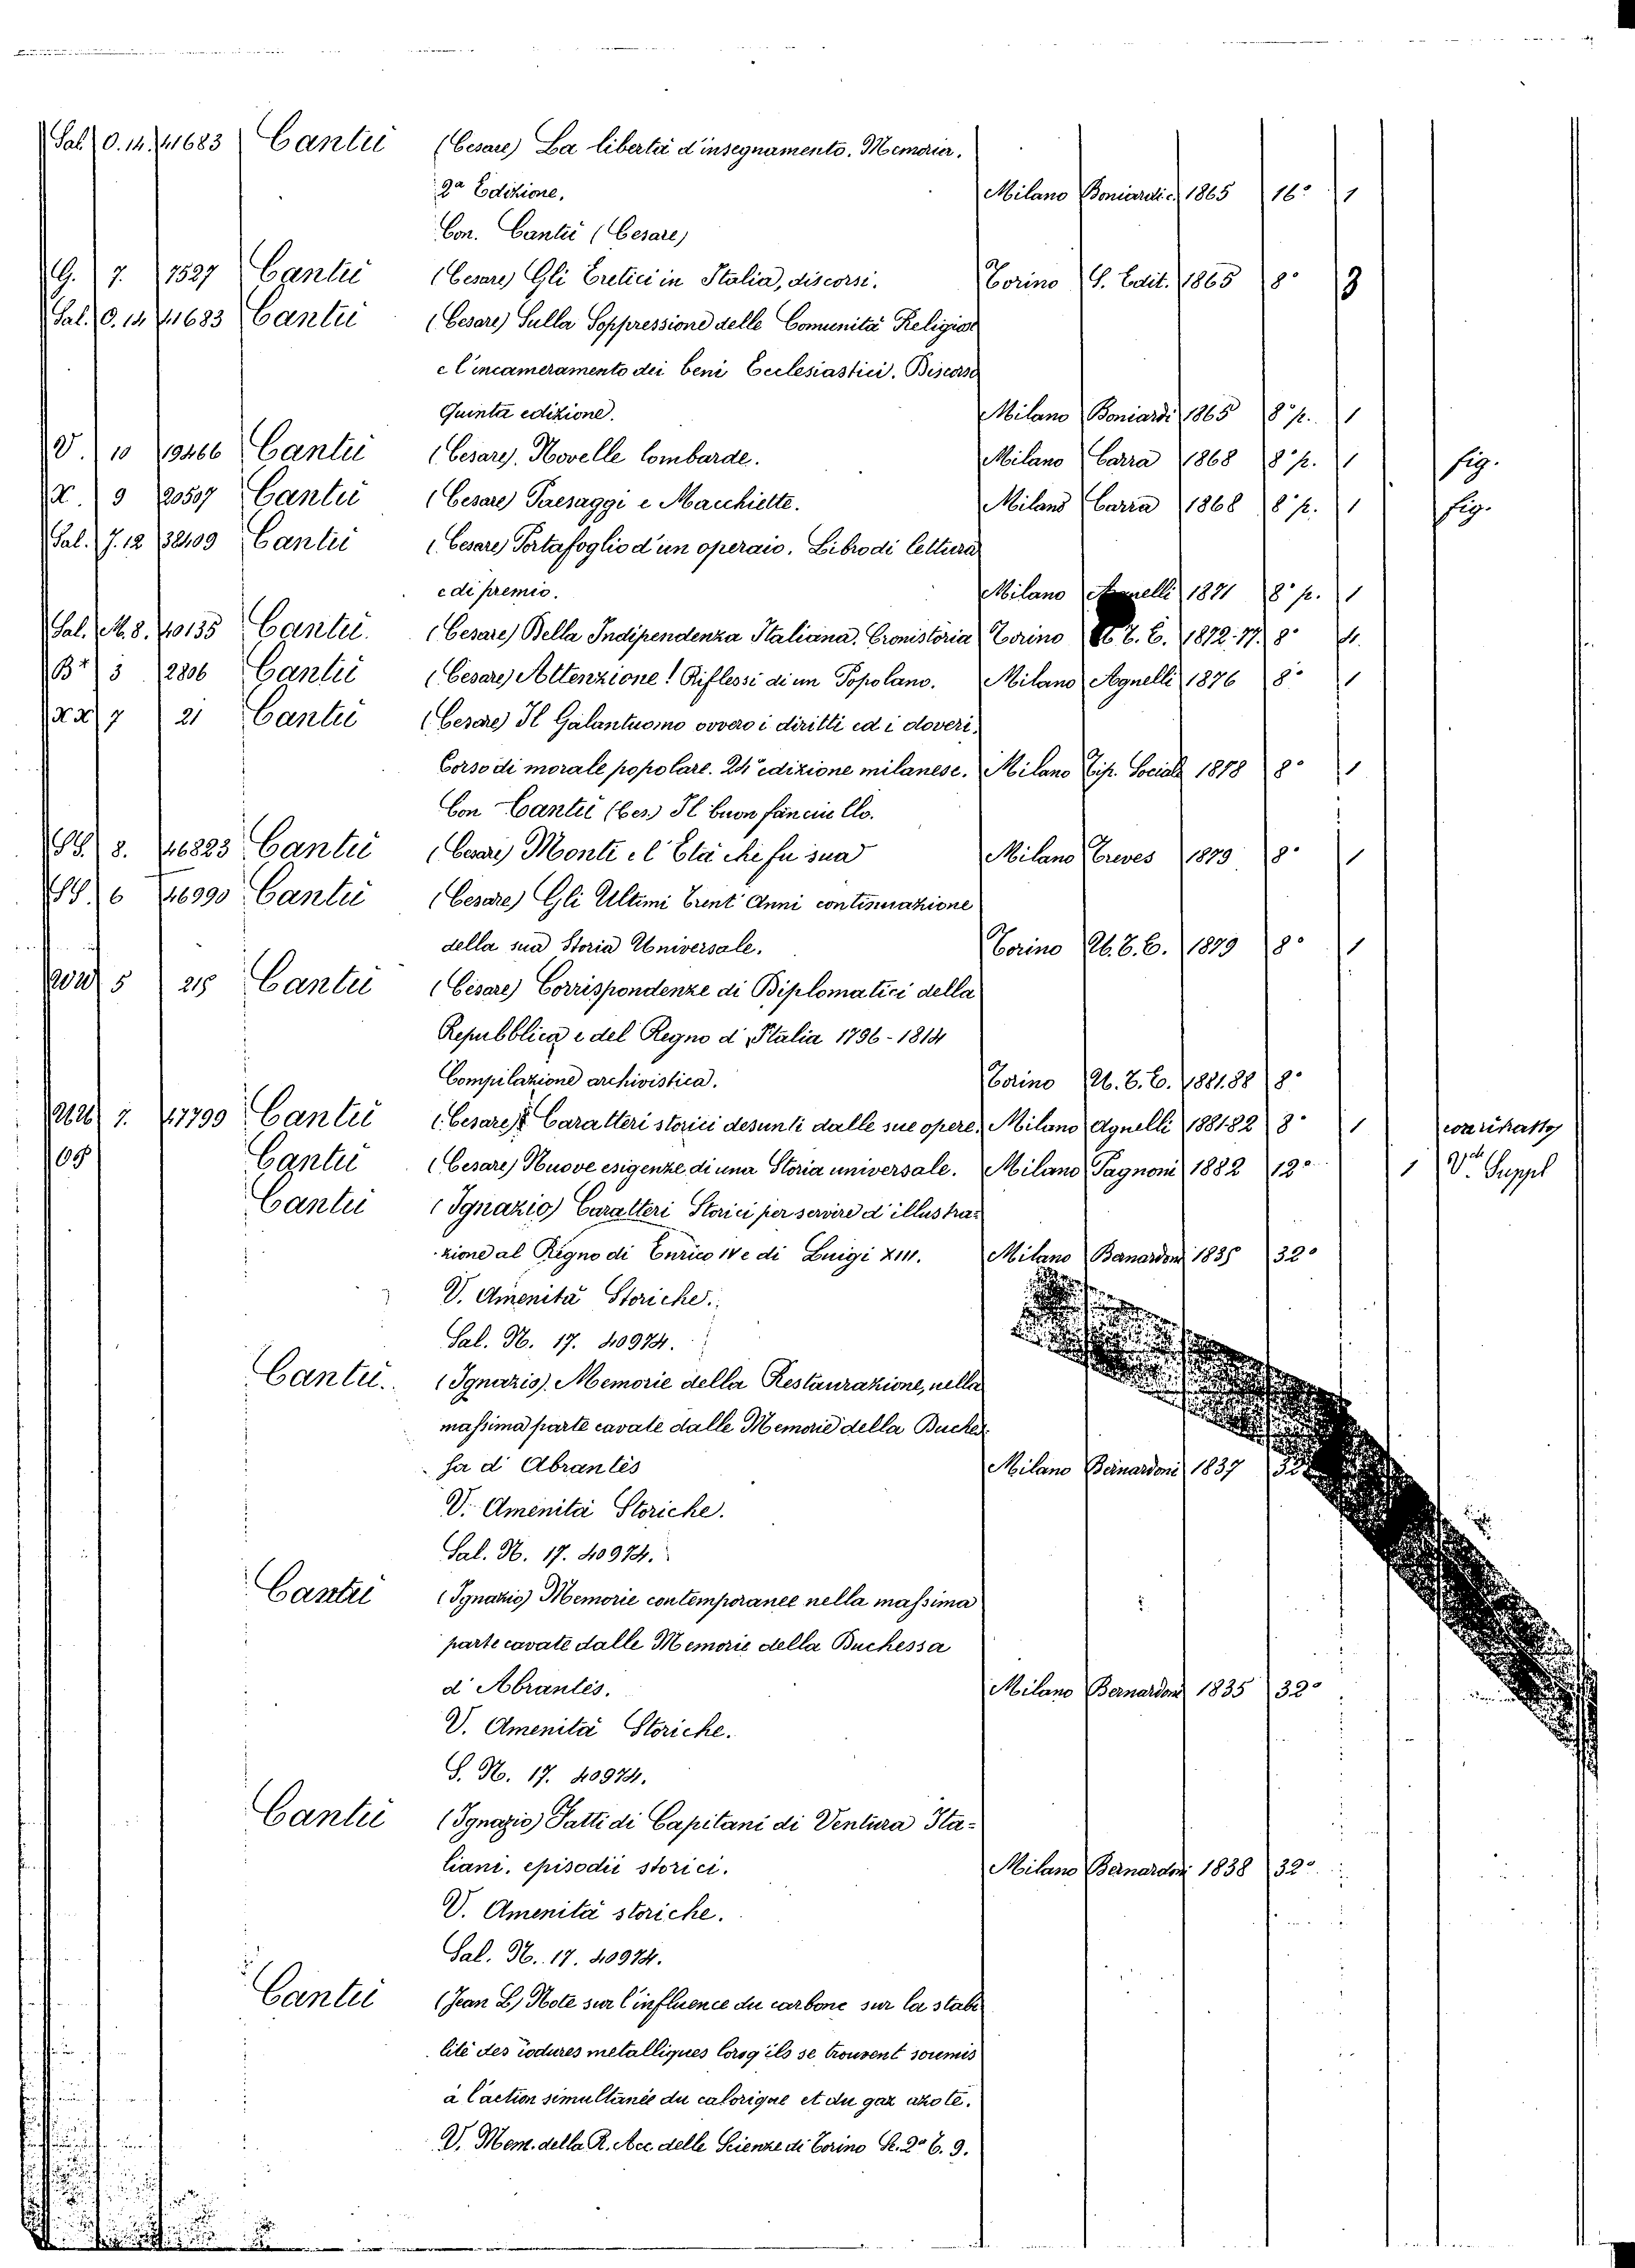 Sal. O. 14. 41683 Cantù (Cesare) La libertà d'insegnamento. Memoria.
2a Edizione. Milano Boniardi c. 1865 16° 1
Con. Cantù (Cesare)
G. 7. 7527 Cantù (Cesare) Gli Eretici in Italia, discorsi. Torino S. Edit. 1865 8° 3
Sal. O. 14 41683 Cantù (Cesare) Sulla Soppressione delle Comunità Religiose
e l'incameramento dei beni Ecclesiastici. Discorso
Quinta edizione. Milano Boniardi 1865 8° p. 1
V. 10 19466 Cantù (Cesare). Novelle lombarde. Milano Carra 1868 8° p. 1 fig.
X. 9 20507 Cantù (Cesare) Paesaggi e Macchiette. Milano Carra 1868 8° p. 1 fig.
Sal. J. 12 32409 Cantù (Cesare) Portafoglio d'un operaio. Libro di lettura
e di premio. Milano Agnelli 1871 8° p. 1
Sal. M. 8. 40135 Cantù. (Cesare) Della Indipendenza Italiana. Cronistoria Torino U. T. E. 1872.77. 8° 4.
3 2806 Cantù (Cesare) Attenzione! Riflessi di un Popolano. Milano Agnelli 1876 8° 1
XX 7 21 Cantù (Cesare) Il Galantuomo ovvero i diritti ed i doveri.
Corso di morale popolare. 24a edizione milanese. Milano Tip. Sociale 1878 8° 1
Con Cantù (Ces.) Il buon fanciullo.
SS. 8. 46823 Cantù (Cesare) Monti e l'Età che fu sua Milano Treves 1879 8° 1
SS. 6 46990 Cantù (Cesare) Gli Ultimi Trent'Anni continuazione
della sua Storia Universale. Torino U. T. E. 1879 8° 1
5 215 Cantù (Cesare) Corrispondenze di Diplomatici della
Repubblica e del Regno d'Italia 1796-1814
Compilazione archivistica. Torino U. T. E. 1881.88 8°
7. 47799 Cantù (Cesare) Caratteri storici desunti dalle sue opere. Milano Agnelli 1881-82 8° 1 con ritratto
Cantù (Cesare) Nuove esigenze di una Storia universale. Milano Pagnoni 1882 12° 1 Suppl
Cantù (Ignazio) Caratteri Storici per servire d'illustra=
zione al Regno di Enrico IV e di Luigi XIII. Milano Bernardoni 1835 32°
V. Amenità Storiche.
Sal. N. 17. 40974.
Cantù. (Ignazio). Memorie della Restaurazione, nella
massima parte cavate dalle Memorie della Duches
sa d'Abrantès Milano Bernardoni 1837 32
V. Amenità Storiche.
Sal. N. 17. 40974.
Cantù (Ignazio) Memorie contemporanee nella massima
parte cavate dalle Memorie della Duchessa
d'Abrantès. Milano Bernardoni 1835 32°
V. Amenità Storiche.
S. N. 17. 40974.
Cantù (Ignazio) Fatti di Capitani di Ventura Ita=
liani, episodii storici. Milano Bernardoni 1838 32°
V. Amenità storiche.
Sal. N. 17. 40974.
Cantù (Jean L.) Note sur l'influence du carbone sur la stabi
lité des iodures metalliques lorsq'ils se trouvent soumis
à l'action simultanée du calorique et du gaz azote.
V. Mem. della R. Acc. delle Scienze di Torino S. 2a T. 9.